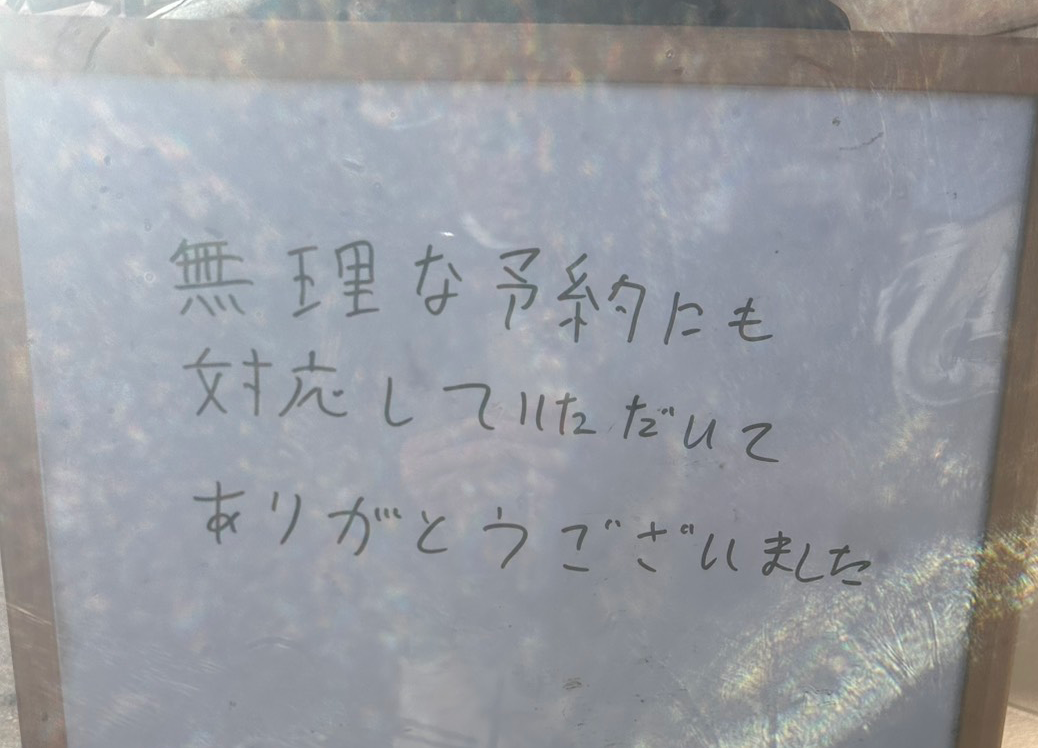 無理な予約にも
対応していただいて
ありがとうございました